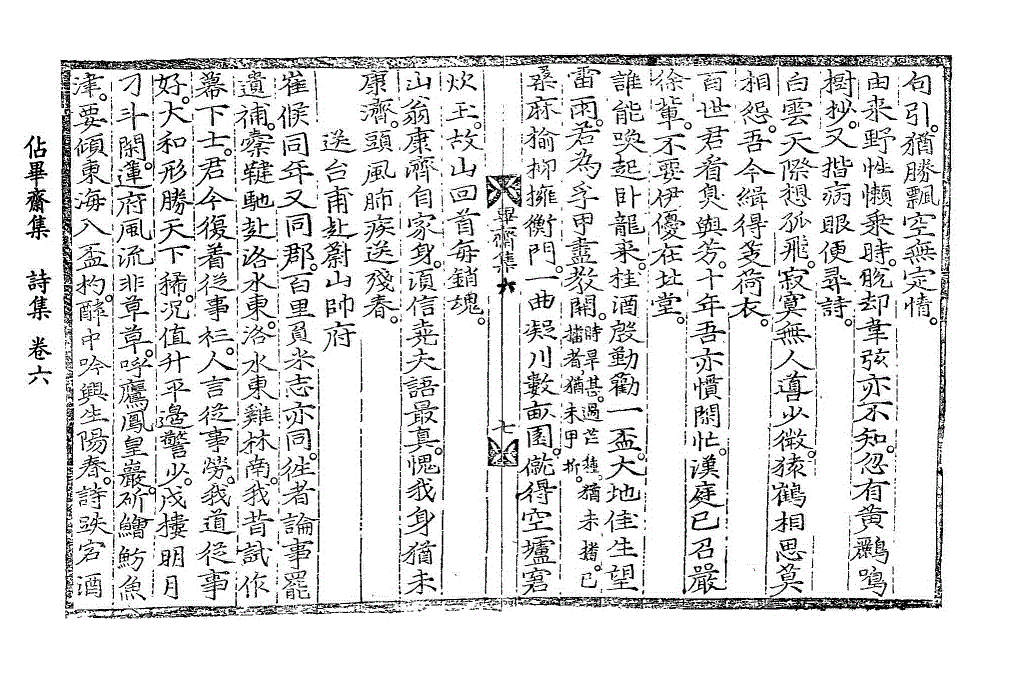 句引。猶勝飄空無定情。
由來野性懶乘時。脫却韋弦亦不知。忽有黃鸝鳴
樹抄。又揩病眼便尋詩。
白雲天際想孤飛。寂寞無人噵少微。猿鶴相思莫
相怨。吾今緝得芰荷衣。
百世君看臭與芳。十年吾亦慣閑忙。漢庭已召嚴
徐輩。不要伊優在北堂。
誰能喚起卧龍來。桂酒慇勤勸一盃。大地佳生望
雷雨。君為孚甲盡教開。時旱甚。過芒種猶未播。已
播者猶未甲拆。
桑麻揄柳擁衡門。一曲凝川數畝園。得空壚窘
畢齋集六
七
炊玉。故山回首每銷魂。
山翁康濟自家身。須信堯夫語最真。愧我身猶未
康濟。頭風肺疾送殘春。
送台甫赴蔚山帥府
崔侯同年又同郡。百里負米志亦同。徃者論事罷
遺補。櫜鞬馳赴洛水東。洛水東雞林南。我昔試作
幕下士。君今復着從事衫。人言從事勞。我道從事
好。大和形勝天下稀。况值升平邊警少。戍樓明月
刁斗閑。蓮府風流非草草。呼鷹鳳皇巖。斫鱠魴魚
津。要傾東海入盃杓。醉中吟興生陽春。詩跌宕酒
佔畢齋集 詩集 卷六